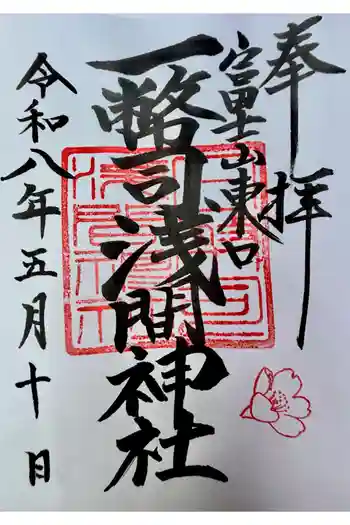 奉拝
富士山東口
一幣司浅間神社
令和八年五月十日